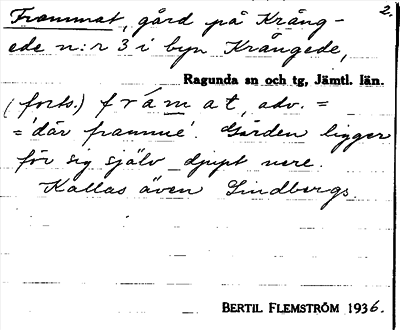 2.
Frammat, gård på Kräng-
ede n:r 3 i byn Krångede,
Ragunda sn och tg, Jämtl. län.
(forts.) fràmat, adv. =
= 'där framme'. Gården ligger
för sig själv djupt nere.
Kallas även Lindbergs.
BERTIL FLEMSTRÖM 1936.